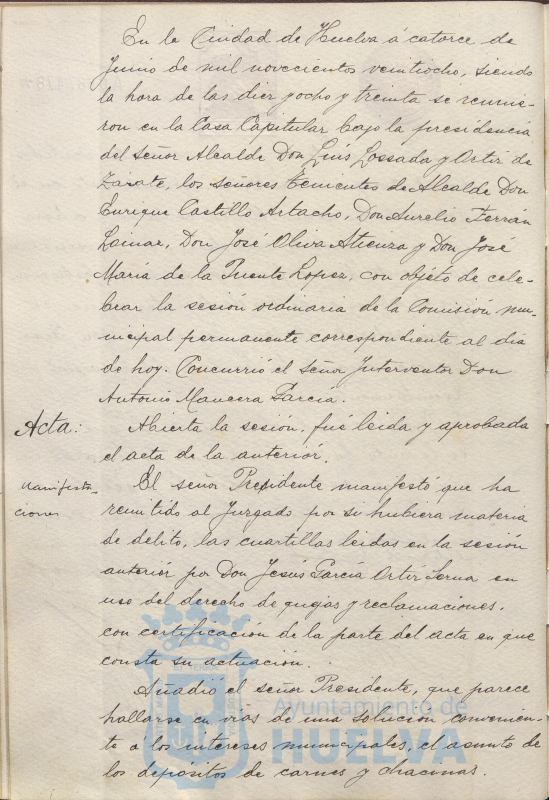 En la Ciudad de Huelva á catorce de
Junio de mil novecientos veintiocho, siendo
la hora de las diez y ocho y treinta se reunie-
ron en la Casa Capitular bajo la presidencia
del señor Alcalde Don Luis Lossada y Ortiz de
Zárate, los señores Tenientes de Alcalde Don
Enrique Castillo Artacho, Don Aurelio Ferran
Lainar, Don José Oliva Atienza y Don José
María de la Puente Lopez, con objeto de cele-
brar la sesión ordinaria de la Comisión mu-
nicipal permanente correspondiente al dia
de hoy. Concurrió el señor Interventor Don
Antonio Mancera García.
Acta: Abierta la sesión, fué leida y aprobada
el acta de la anterior.
Manifesta-
ciones
El señor Presidente manifestó, que ha
remitido al Juzgado por si hubiera materia
de delito, las cuartillas leidas en la sesión
anterior por Don Jesús García Ortiz Serna en
uso del derecho de quejas y reclamaciones,
con certificación de la parte del acta en que
consta su actuación.
Añadió el señor Presidente, que parece
hallarse en vias de una solución convenien-
te a los intereses municipales, el asunto de
los depósitos de carnes y chacinas.
Ayuntamiento de
HUELVA